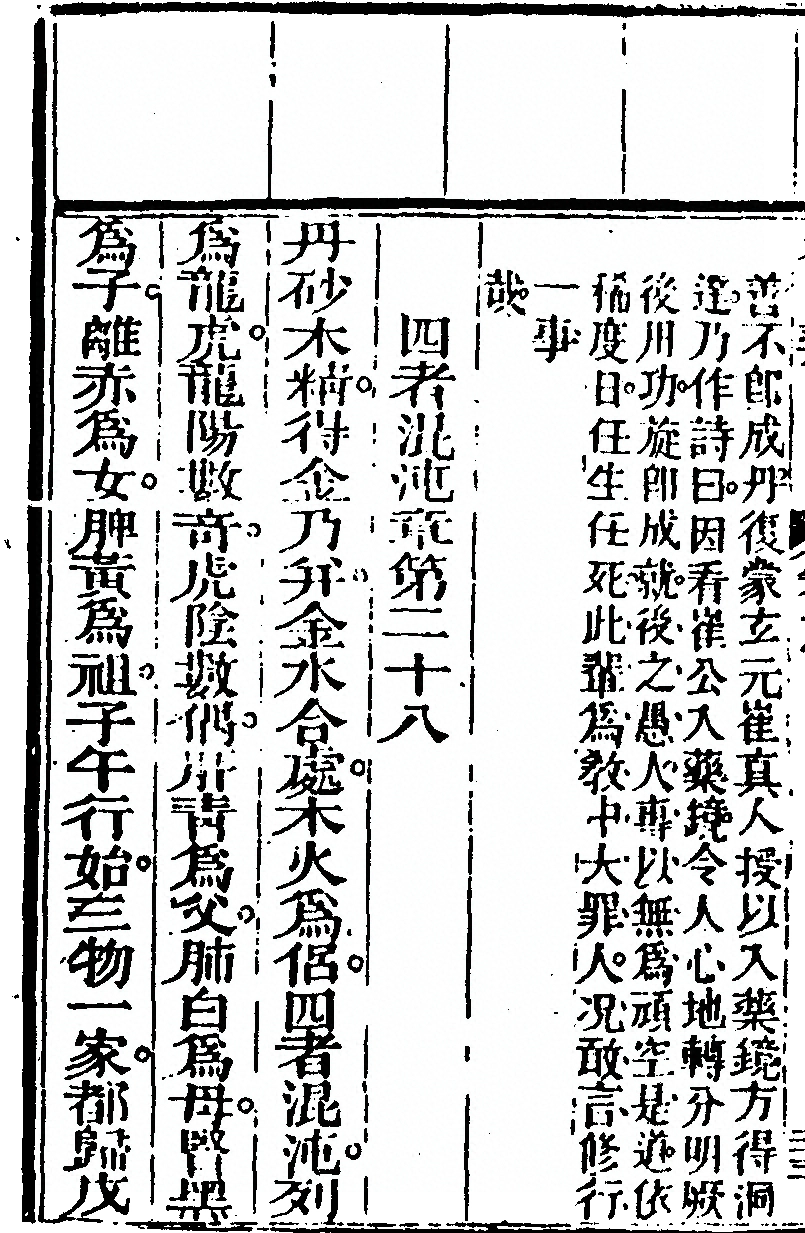 善不卽成丹復蒙玄元崔真人授以入藥鏡方得洞
達乃作詩曰因看崔公入藥鏡令人心地轉分明厥
後用功旋卽成就後之愚人專以無爲頑空是道依
稀度日任生任死此輩爲敎中大罪人况敢言修行
一事
哉
四者混沌章第二十八
丹砂木精得金乃幷金水合處木火爲侶四者混沌列
爲龍虎龍陽數奇虎陰數偶肝靑爲父肺白爲母腎黑
爲子離赤爲女脾黃爲祖子午行始三物一家都歸戊